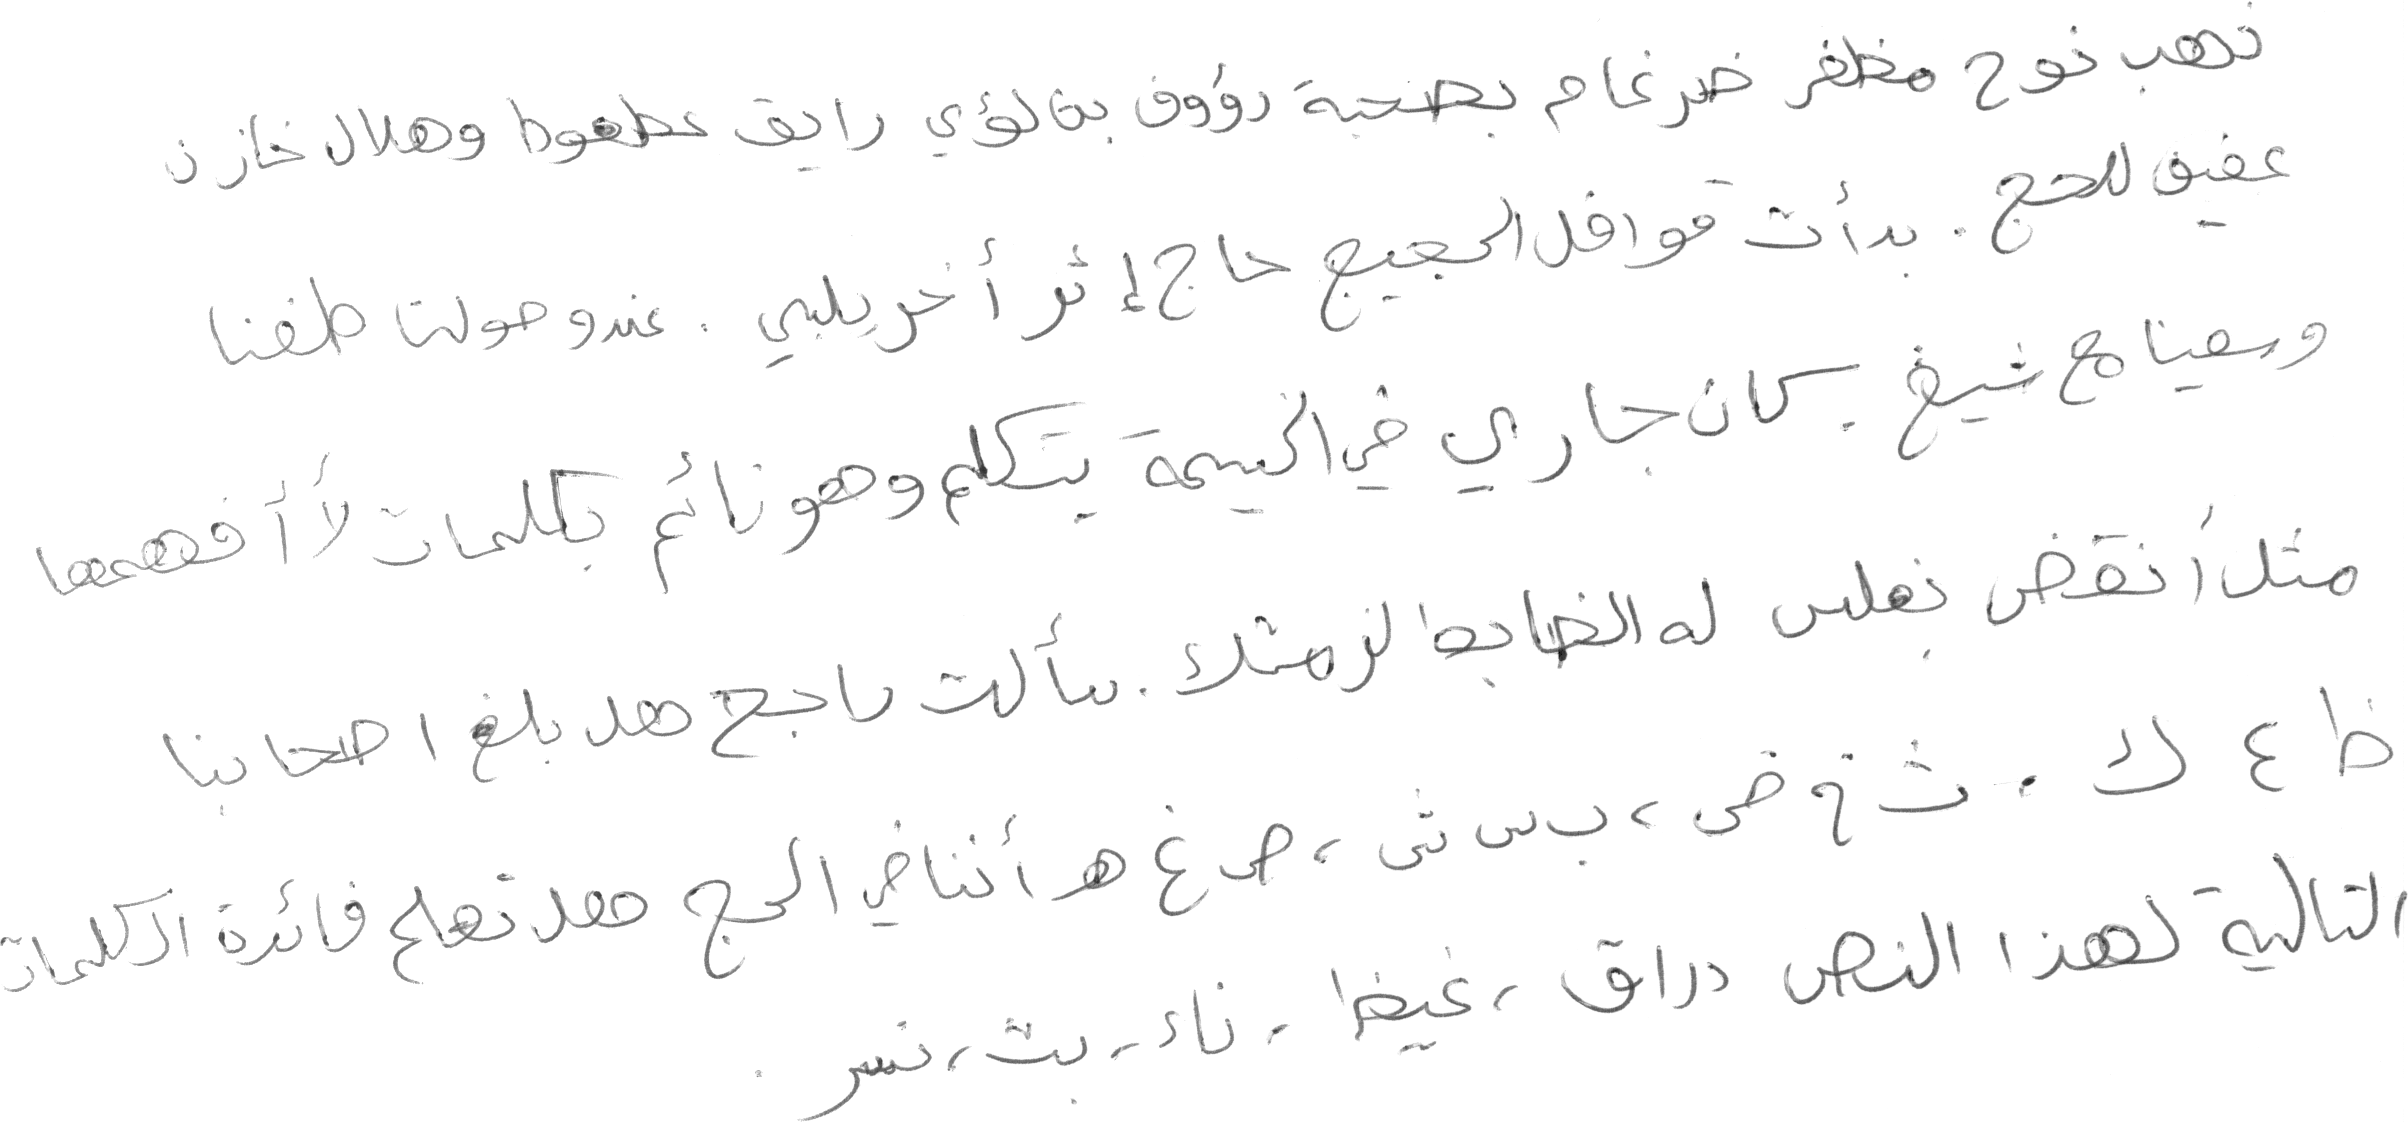 ذهب نوح مظفر ضرغام بصحبة رؤوف بن لؤي رايق عطعوط وهلال خازن
عفيف للحج . بدأت قوافل الحجيج حاج إثر أخر يلبي . عند وصولنا طفنا
وسعينا مع شيخ . كان جاري في الخيمة يتكلم وهو نائم بكلمات لا أفهمها
مثل أنقض بعلس له الضابط لزمتك . سألت راجح هل بلغ اصحابنا
ظ ع ك ، ث ق ض ، ب س ش ، ص غ هـ أننا في الحج فهل تعلم فائدة الكلمات
التالية لهذا النص دراق ، غيظ ، ناء ، بث ، نسر .